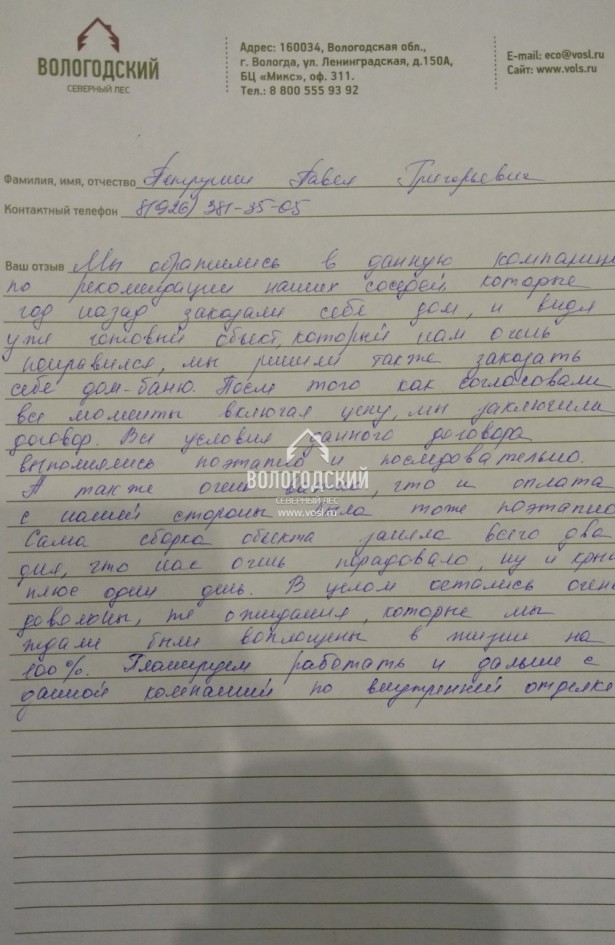 ВОЛОГОДСКИЙ
СЕВЕРНЫЙ ЛЕС
Адрес: 160034, Вологодская обл.,
г. Вологда, ул. Ленинградская, д.150А,
БЦ «Микс», оф. 311.
Тел.: 8 800 555 93 92
E-mail: eco@vosl.ru
Сайт: www.vols.ru
Фамилия, имя, отчество Павел Григорьевич
Контактный телефон 8(926) 381-35-05
Ваш отзыв Мы обратились в данную компанию
по рекомендации наших соседей которые
год назад заказали себе дом, и видя
уже готовый обьект, который нам очень
понравился, мы решили также заказать
себе дом-баню. После того как согласовали
все моменты включая цену, мы заключили
договор. Все условия данного договора
выполнялись поэтапно и последовательно.
А также очень что и оплата
с нашей стороны была тоже поэтапно
Сама сборка обьекта заняла всего два
дня, что нас очень порадовало, ну и крыша
плюс один день. В целом остались очень
довольны, те ожидания, которые мы
ждали были воплощены в жизни на
100%. Планируем работать и дальше с
данной компанией по внутренней отделке
ВОЛОГОДСКИЙ
СЕВЕРНЫЙ ЛЕС
www.vosl.ru
ВОЛОГОДСКИЙ
СЕВЕРНЫЙ ЛЕС
www.vosl.ru